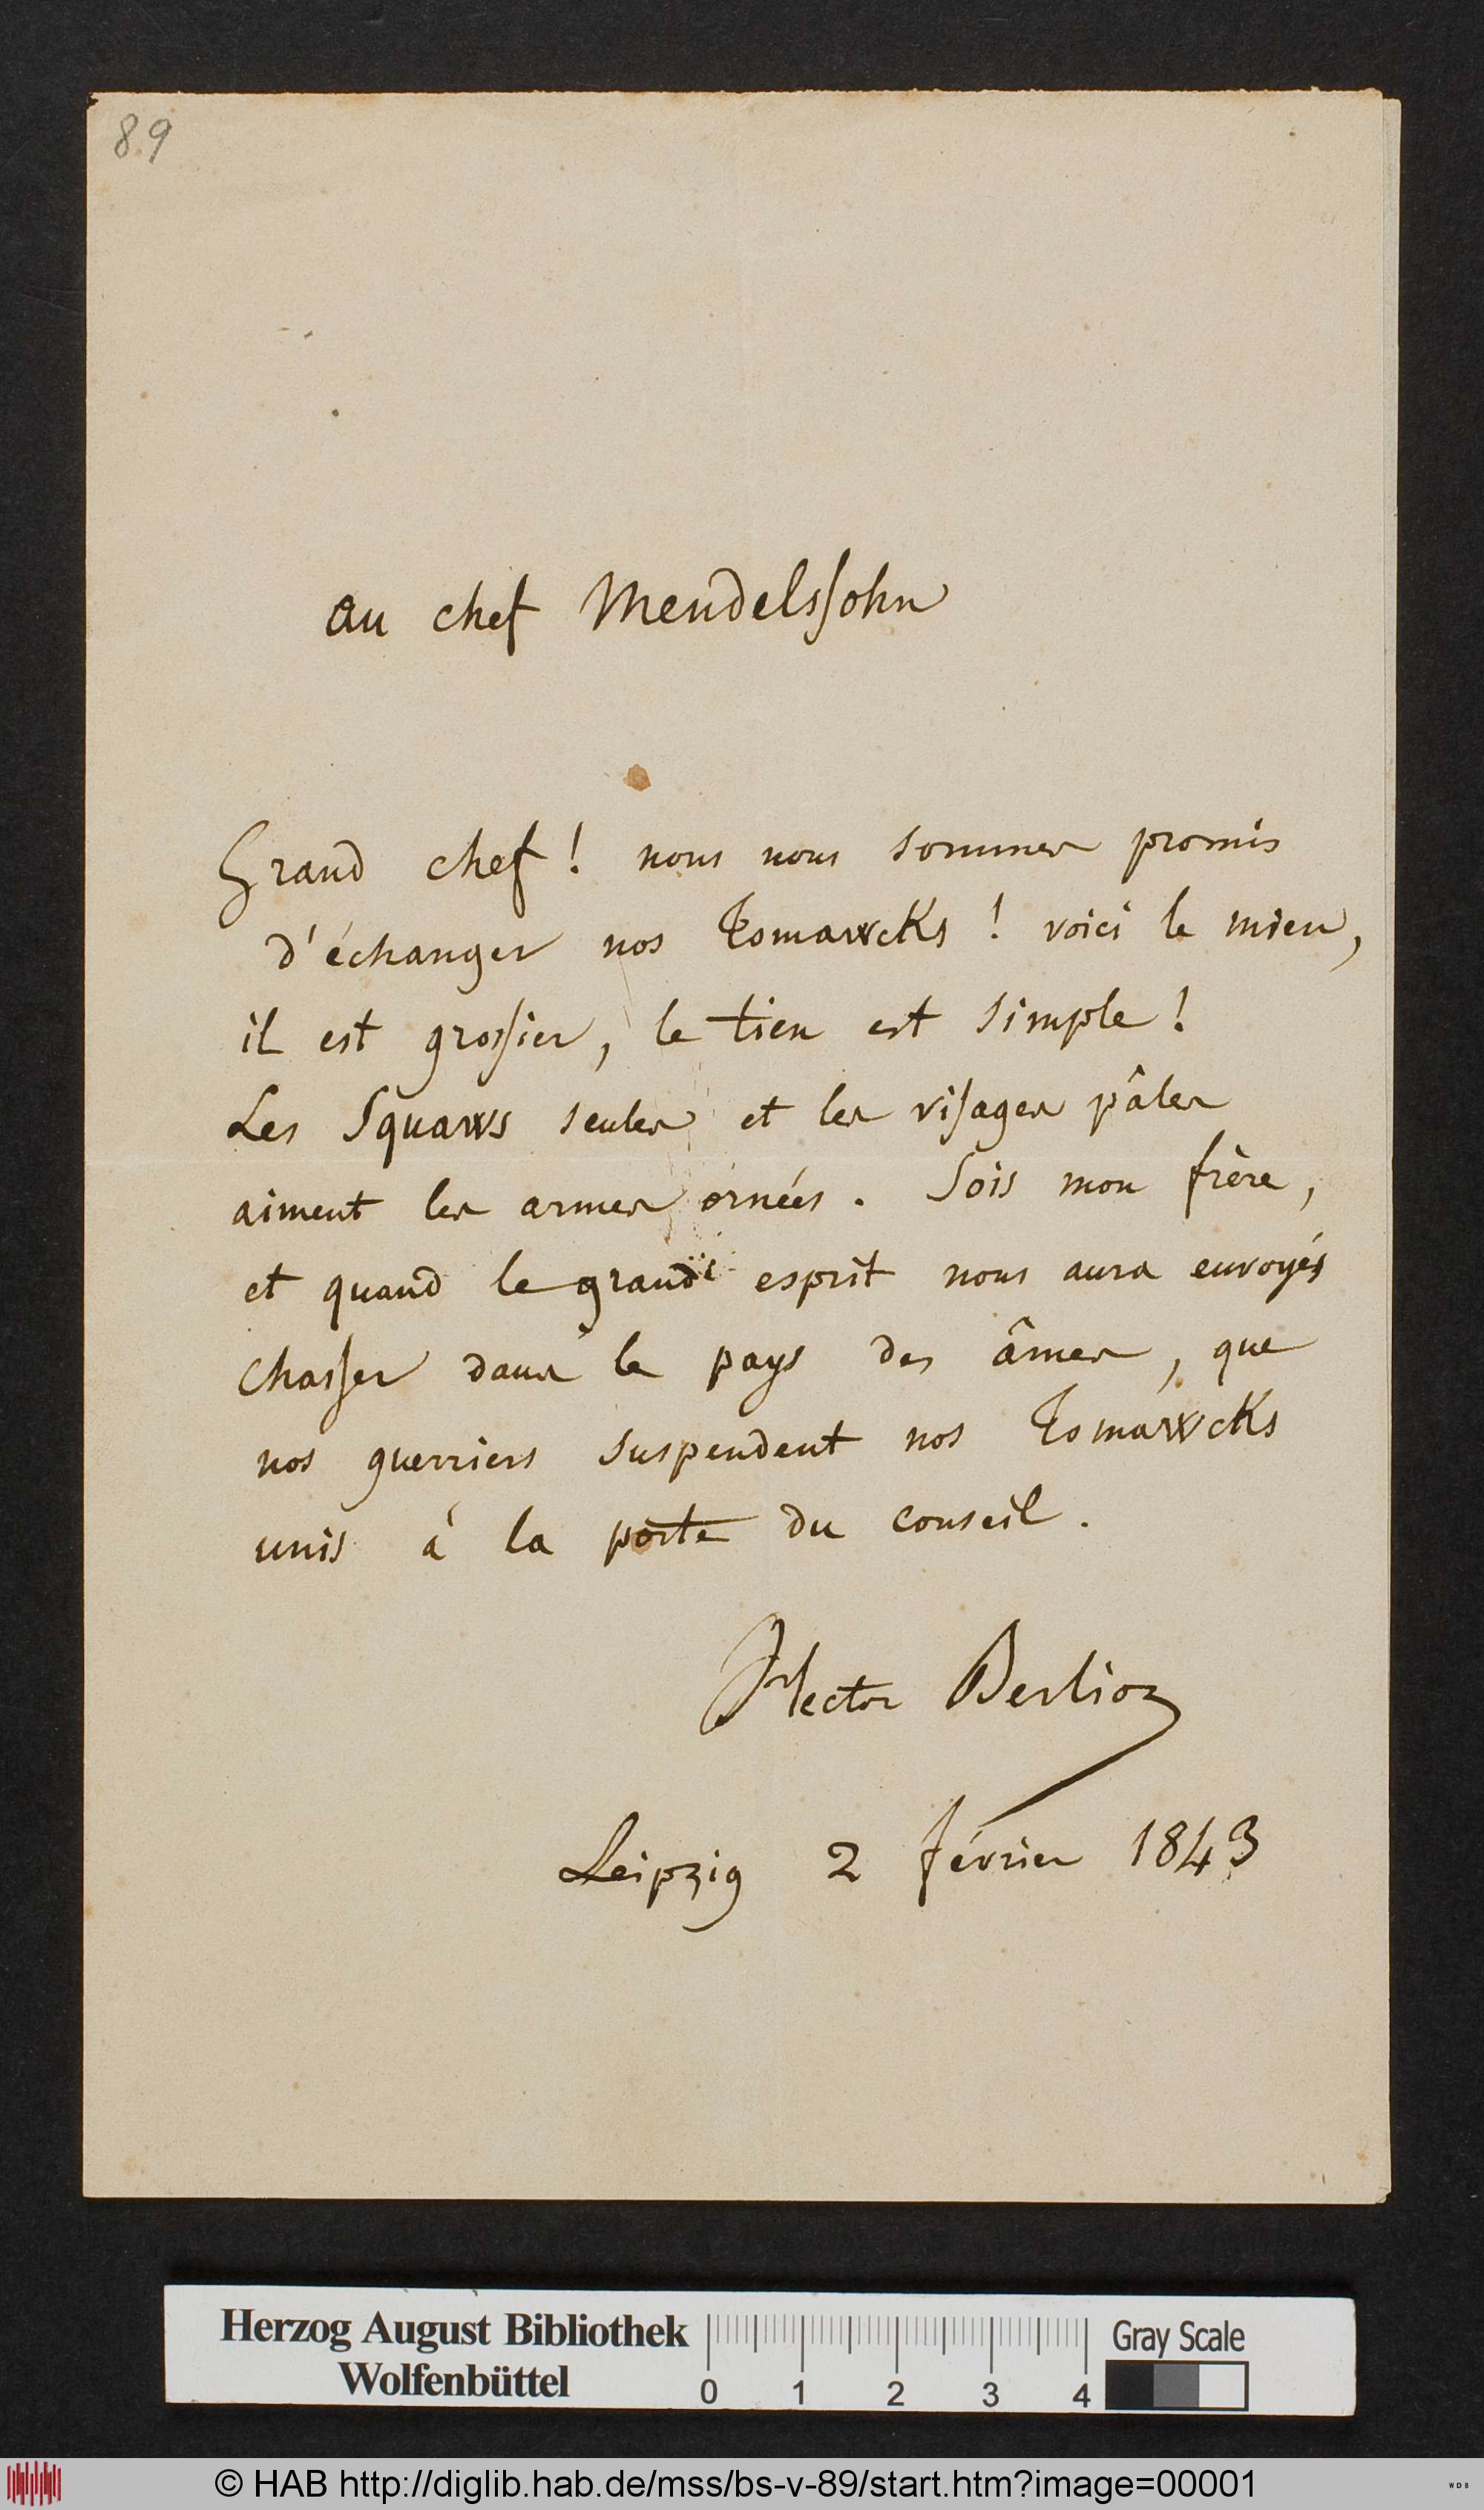 89
au chef Mendelssohn
Grand chef ! nous nous sommes promis
d'échanger nos Tomawcks ! voici le mien,
il est grossier, le tien est simple !
Les Squaws seules et les visages pâles
aiment les armes ornées. Sois mon frère,
et quand le grand esprit nous aura envoyés
chasser dans le pays des âmes, que
nos guerriers suspendent nos Tomawcks
unis à la porte du conseil.
Hector Berlioz
Leipzig 2 février 1843
Herzog August Bibliothek
Wolfenbüttel
0 1 2 3 4
Gray Scale
© HAB http://diglib.hab.de/mss/bs-v-89/start.htm?image=00001
WDB